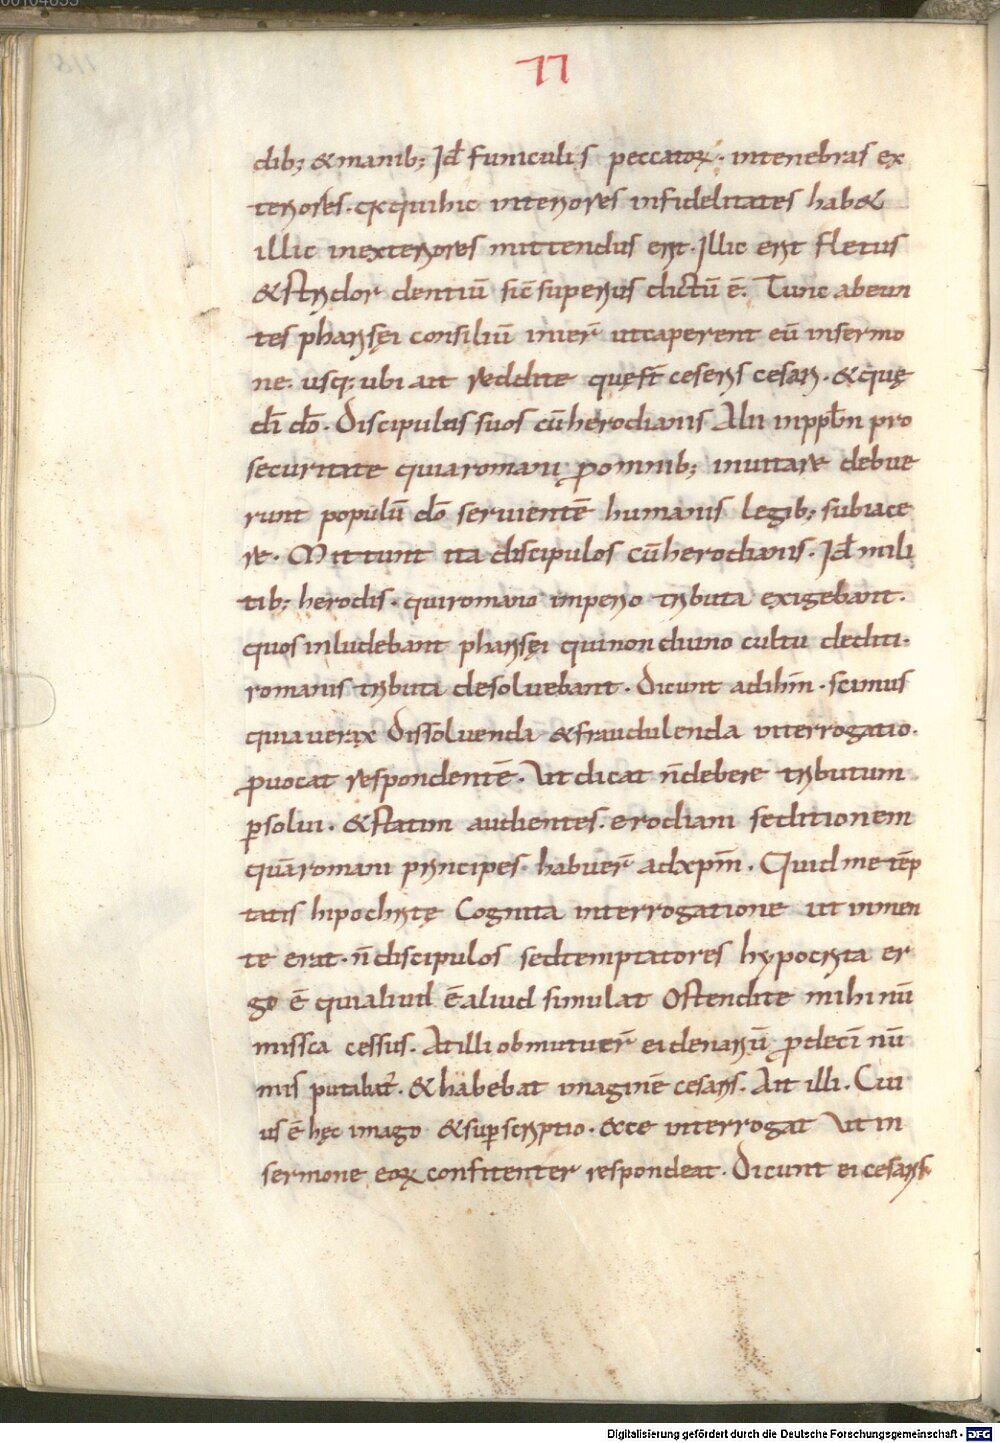 77
dib; & manib; Id̄ funiculis peccatoꝝ · intenebras ex
teriores · qꝛ quihic interiores infidelitates hab&
illic inexteriores mittendus erit · Illic erit fletus
& stridor dentiū sic̄ superius dictū ē · Tunc abeun
tes pharisęi consiliū inier̄ utcaperent eū insermo
ne · usq; ubi ait reddite quę st̄ ceseris cesari · & quę
dī dō · Discipulus suos cū herodianis Alii
securitate quiaromani ꝓomnib; inuitare debue
runt populū dō seruientē humanis legib; subiace
re · Mittunt ita discipulos cū herodianis · Id̄ mili
tib; herodis · quiromano imperio tributa exigebant ·
quos inludebant pharisęi quinon diuino cultu dediti ·
romanis tributa desoluebant · Dicunt adihm̄ · scimus
quia uerax Dissoluenda & fraudulenda interrogatio ·
ꝓuocat respondentē · Ut dicat n̄ debere tributum
ꝑsolui · & statim audientes · erodiani seditionem
quā romani principes · habuer̄ adxpm̄ · Quid me tēp
tatis hipochritę Cognita interrogatione ut inmen
te erat · n̄ discipulos sedtemptatores hypocrita er
go ē quialiud ē aliud simulat Ostendite mihi nū
missca cessus · Atilli obmutuer̄ ei denariū ꝓ decī nū
mis putabat᷑ · & habebat imaginē cesaris · Ait illi · Cui
us ē hęc imago & suꝑscriptio · &cce interrogat Ut in
sermone eoꝝ confitenter respondeat · Dicunt ei cesaris
Digitalisierung gefördert durch die Deutsche Forschungsgemeinschaft - DFG